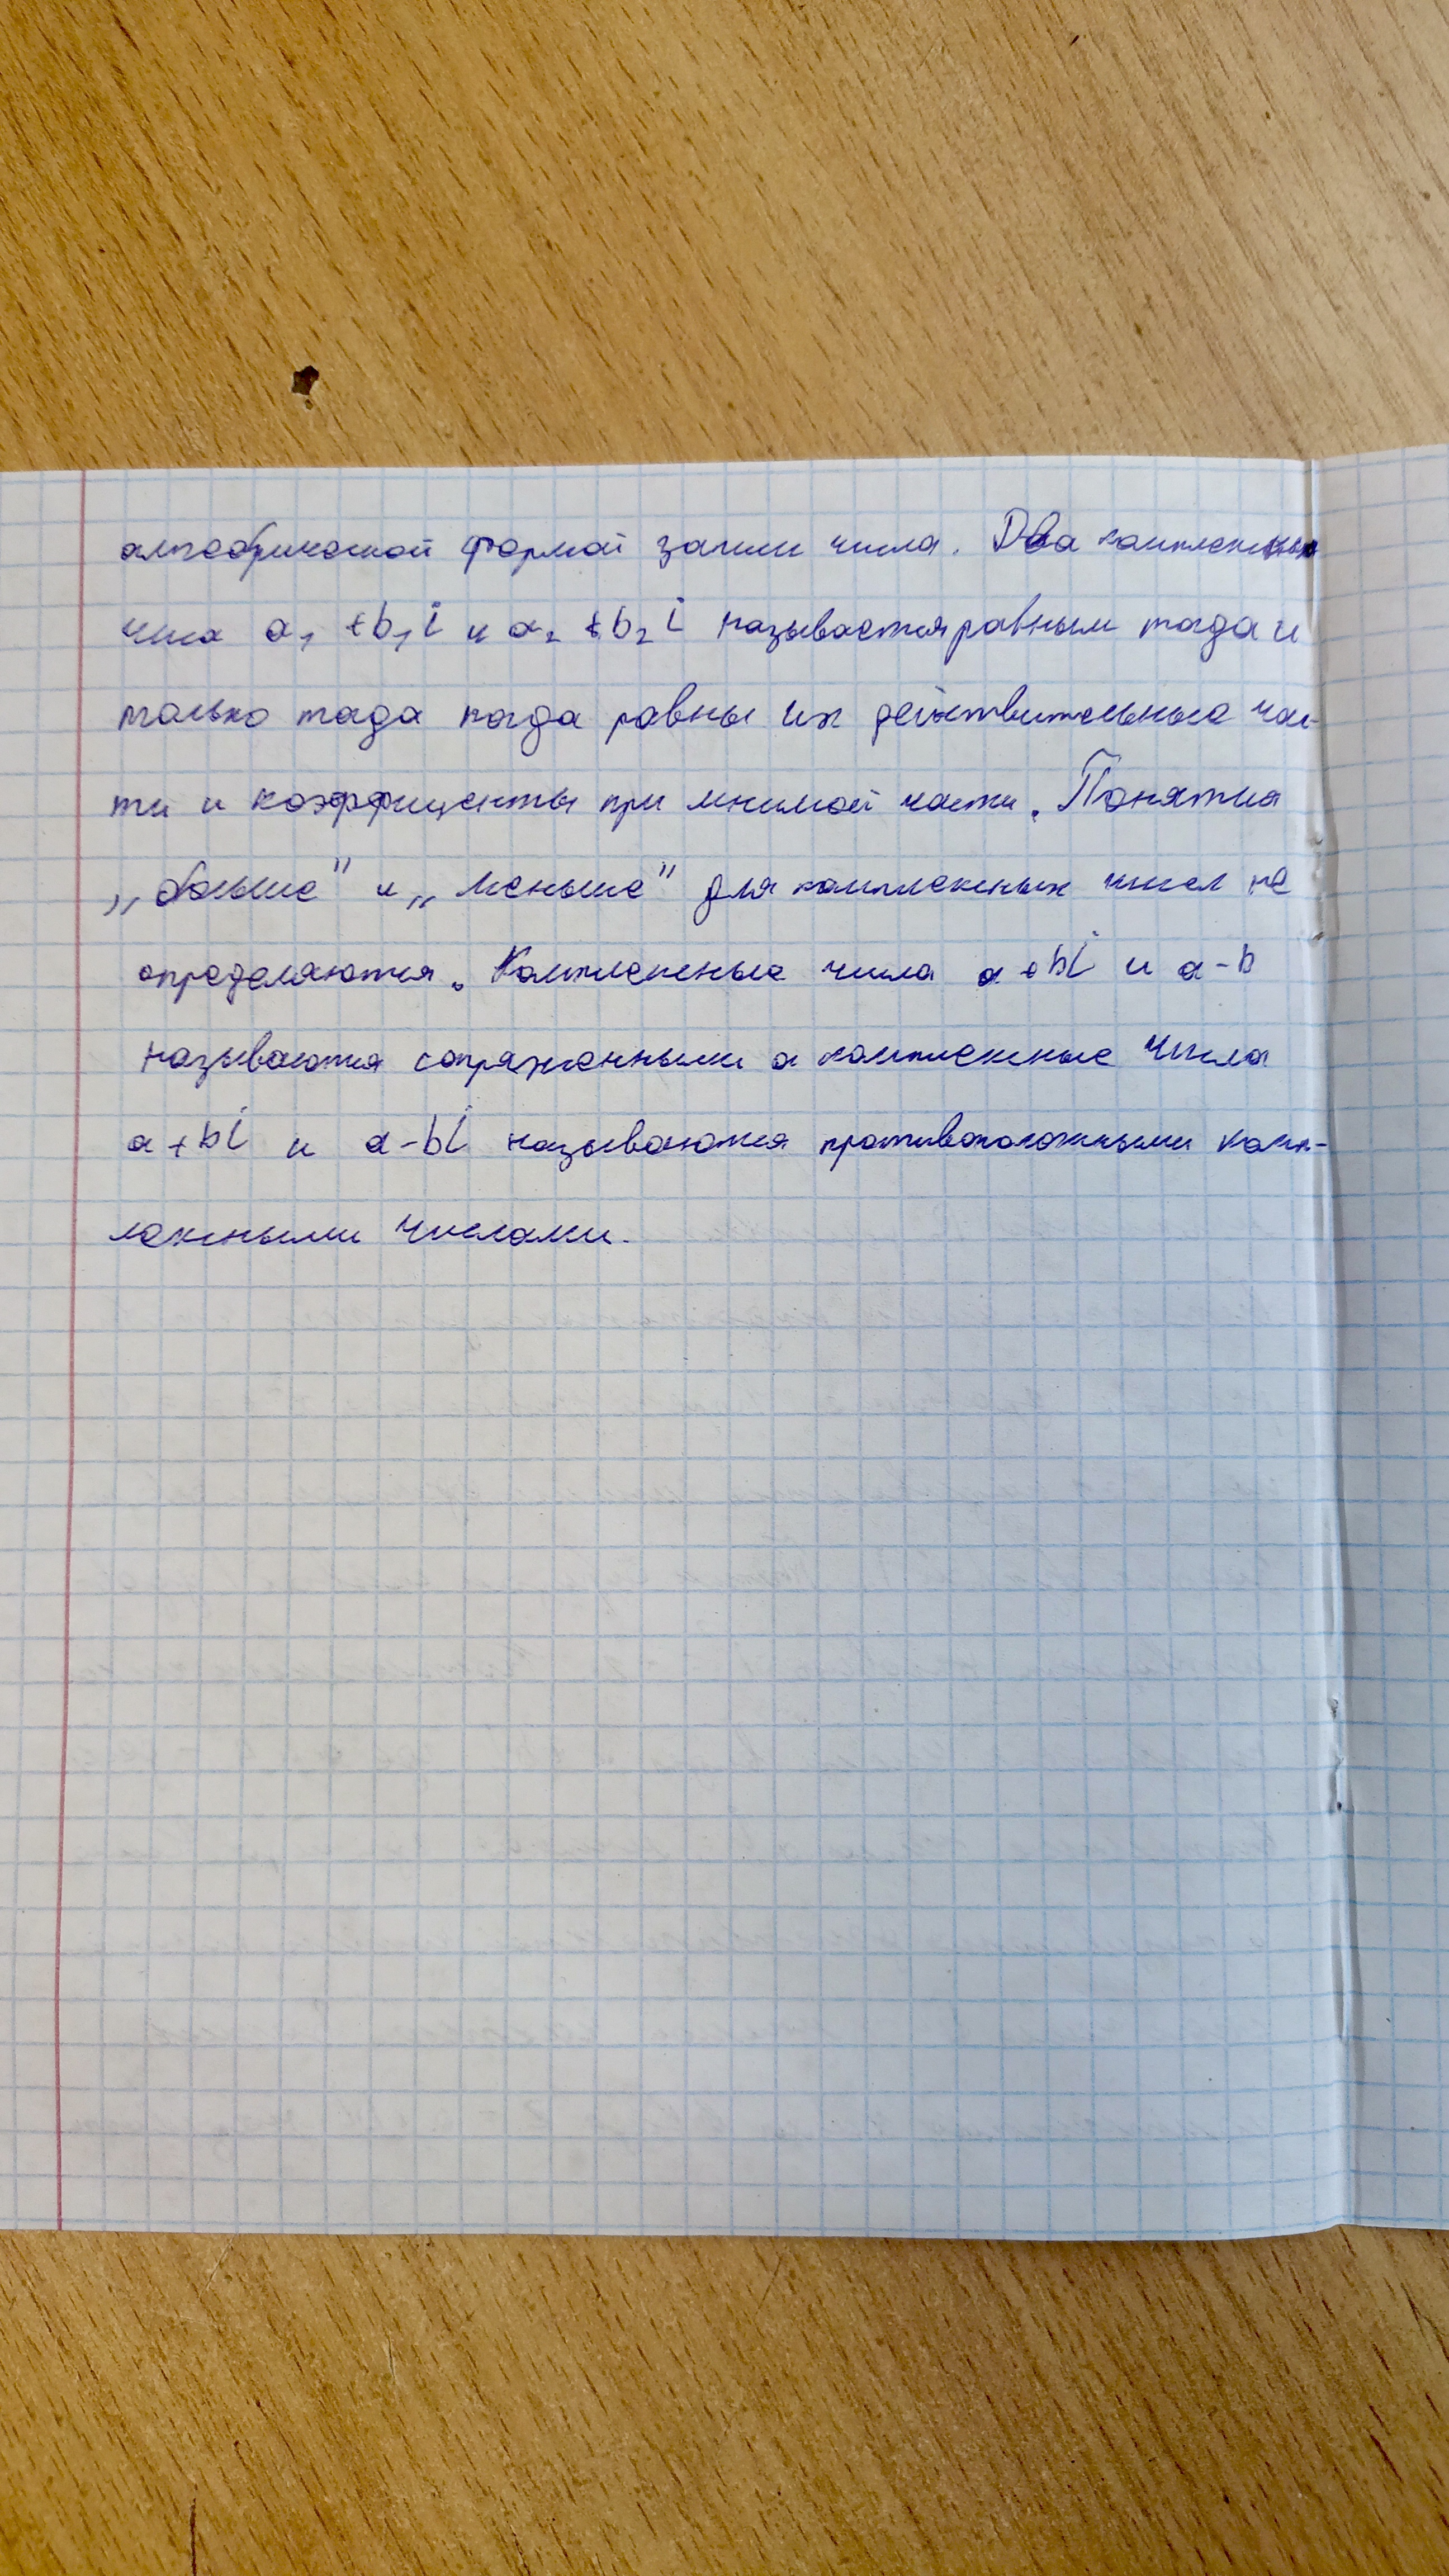 алгебрической формой записи числа. Два комплексных
числа a₁ + b₁i и a₂ + b₂i называется равным тогда и
только тогда когда равны их действительные час-
ти и коэффиценты при мнимой части. Понятия
„больше" и „меньше" для комплексных чисел не
определяются. Комплексные числа a + bi и a - b
называются сопряженными а комплексные числа
a + bi и a - bi называются противоположными комп-
лексными числами.